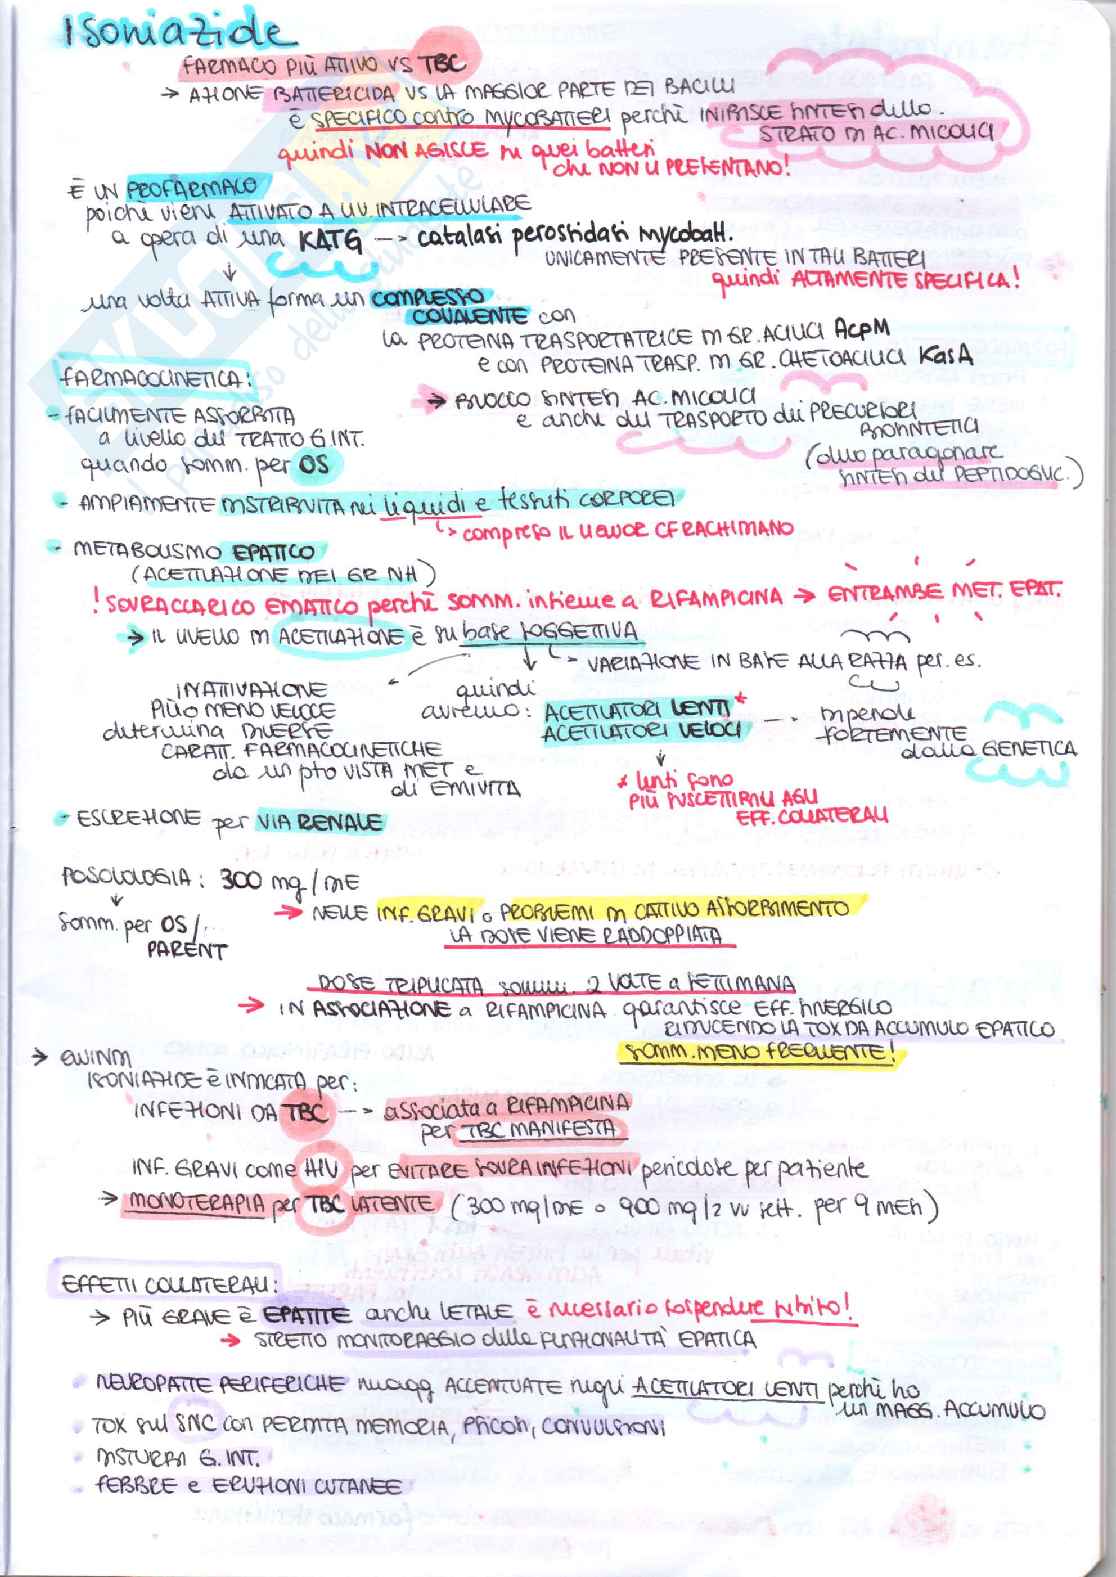 Isoniazide
FARMACO PIÙ ATTIVO VS TBC
→ AZIONE BATTERICIDA VS LA MAGGIOR PARTE DEI BACILLI
È SPECIFICO contro MYCOBATTERI perchè INIBISCE SINTESI dello
STRATO DI AC. MICOLICI
quindi NON AGISCE su quei batteri
che NON LI PRESENTANO!
È UN PROFARMACO
poichè viene ATTIVATO A LIV. INTRACELLULARE
a opera di una KATG --> catalasi perossidasi mycobatt.
UNICAMENTE PRESENTE IN TALI BATTERI
quindi ALTAMENTE SPECIFICA!
↓
una volta ATTIVA forma un COMPLESSO
COVALENTE con
la PROTEINA TRASPORTATRICE DI GR. ACILICI AcpM
e con PROTEINA TRASP. DI GR. CHETOACILICI KasA
FARMACOCINETICA:
→ BLOCCO SINTESI AC. MICOLICI
e anche del TRASPORTO dei PRECURSORI
BIOSINTETICI
(devo paragonare
SINTESI del PEPTIDOGLIC.)
- FACILMENTE ASSORBITA
a livello del TRATTO G.INT.
quando somm. per OS
- AMPIAMENTE DISTRIBUITA nei liquidi e tessuti CORPOREI
↳ compreso IL LIQUOR CFRACHIMANO
- METABOLISMO EPATICO
(ACETILAZIONE DEL GR NH)
! SOVRACCARICO EMATICO perchè SOMM. insieme a RIFAMPICINA → ENTRAMBE MET. EPAT.
→ IL LIVELLO DI ACETILAZIONE è su base SOGGETTIVA
↳ VARIAZIONE IN BASE ALLA RAZZA per es.
INATTIVAZIONE
PIÙ O MENO VELOCE
determina DIVERSE
CARATT. FARMACOCINETICHE
da un pto VISTA MET e
di EMIVITA
quindi
avremo: ACETILATORI LENTI *
ACETILATORI VELOCI --> dipende
FORTEMENTE
dalla GENETICA
↓
* lenti sono
PIÙ SUSCETTIBILI AGLI
EFF. COLLATERALI
- ESCREZIONE per VIA RENALE
POSOLOLOGIA: 300 mg/DIE
↓
somm. per OS/
PARENT
→ NELLE INF. GRAVI o PROBLEMI DI CATTIVO ASSORBIMENTO
LA DOSE VIENE RADDOPPIATA
DOSE TRIPLICATA somm. 2 VOLTE a SETTIMANA
→ IN ASSOCIAZIONE a RIFAMPICINA garantisce EFF. SINERGICO
RIDUCENDO LA TOX DA ACCUMULO EPATICO
SOMM. MENO FREQUENTE!
→ QUINDI
ISONIAZIDE È INDICATA per:
INFEZIONI DA TBC --> associata a RIFAMPICINA
per TBC MANIFESTA
INF. GRAVI come HIV per EVITARE SOVRAINFEZIONI pericolose per paziente
→ MONOTERAPIA per TBC LATENTE (300 mg/DIE o 900 mg/2 vv sett. per 9 MESI)
EFFETTI COLLATERALI:
→ PIÙ GRAVE È EPATITE anche LETALE è necessario sospendere subito!
→ STRETTO MONITORAGGIO della FUNZIONALITÀ EPATICA
• NEUROPATIE PERIFERICHE magg ACCENTUATE negli ACETILATORI LENTI perchè ho
un MAGG. ACCUMULO
• TOX sul SNC con PERDITA MEMORIA, PSICOSI, CONVULSIONI
• DISTURBI G. INT.
• FEBBRE e ERUZIONI CUTANEE